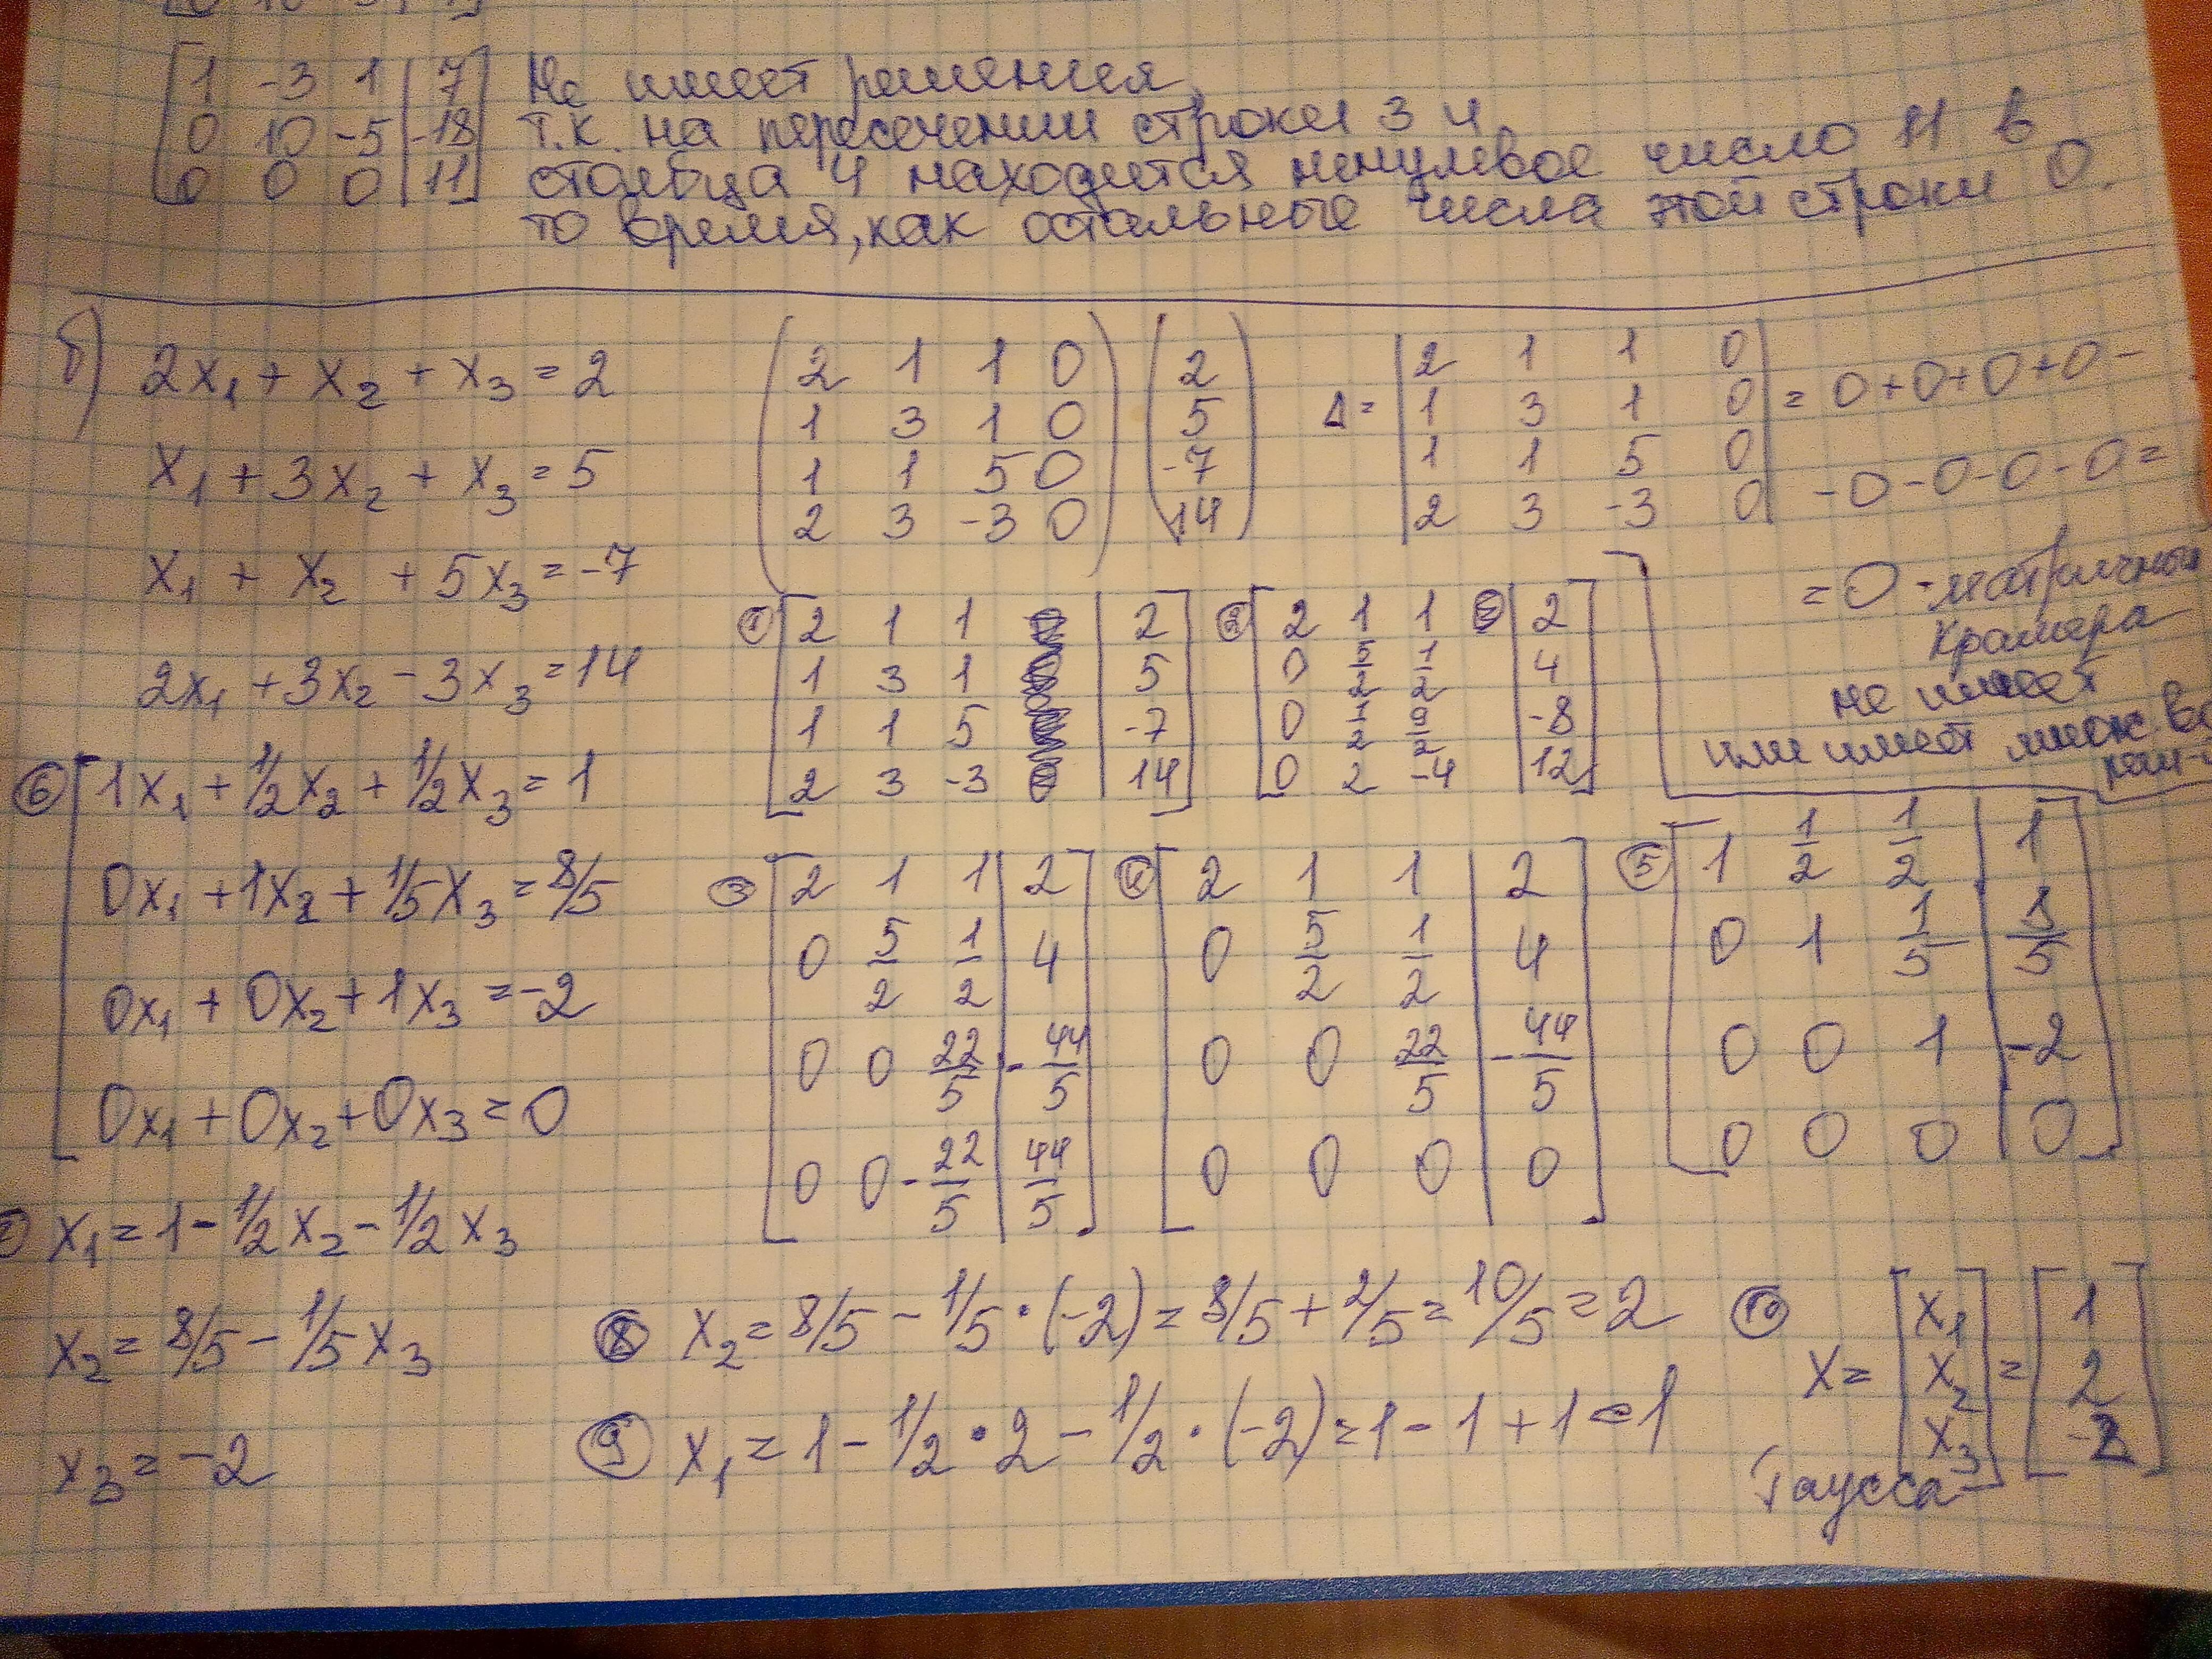 [1 -3 1 | 7] Не имеет решения,
[0 10 -5 | -18] т.к. на пересечении строки 3 и
[0 0 0 | 11] столбца 4 находится ненулевое число 11 в
то время, как остальные числа этой строки 0.
б) 2x₁ + x₂ + x₃ = 2
x₁ + 3x₂ + x₃ = 5
x₁ + x₂ + 5x₃ = -7
2x₁ + 3x₂ - 3x₃ = 14
(2 1 1 0) (2)
(1 3 1 0) (5)
(1 1 5 0) (-7)
(2 3 -3 0) (14)
Δ = |2 1 1 0|
|1 3 1 0| = 0+0+0+0-
|1 1 5 0| -0-0-0-0=
|2 3 -3 0|
= 0 - матричный
Крамера
не имеет
или имеет множ
① [2 1 1 | 2]
[1 3 1 | 5]
[1 1 5 | -7]
[2 3 -3 | 14]
② [2 1 1 | 2]
[0 5/2 1/2 | 4]
[0 1/2 9/2 | -8]
[0 2 -4 | 12]
③ [2 1 1 | 2]
[0 5/2 1/2 | 4]
[0 0 22/5 | -44/5]
[0 0 -22/5 | 44/5]
④ [2 1 1 | 2]
[0 5/2 1/2 | 4]
[0 0 22/5 | -44/5]
[0 0 0 | 0]
⑤ [1 1/2 1/2 | 1]
[0 1 1/5 | 8/5]
[0 0 1 | -2]
[0 0 0 | 0]
⑥ [1x₁ + 1/2x₂ + 1/2x₃ = 1
0x₁ + 1x₂ + 1/5x₃ = 8/5
0x₁ + 0x₂ + 1x₃ = -2
0x₁ + 0x₂ + 0x₃ = 0
x₁ = 1 - 1/2x₂ - 1/2x₃
x₂ = 8/5 - 1/5x₃
x₃ = -2
⑧ x₂ = 8/5 - 1/5·(-2) = 8/5 + 2/5 = 10/5 = 2
⑨ x₁ = 1 - 1/2·2 - 1/2·(-2) = 1 - 1 + 1 = 1
⑩ x = [x₁ x₂ x₃] = [1 2 -2]
Гаусса